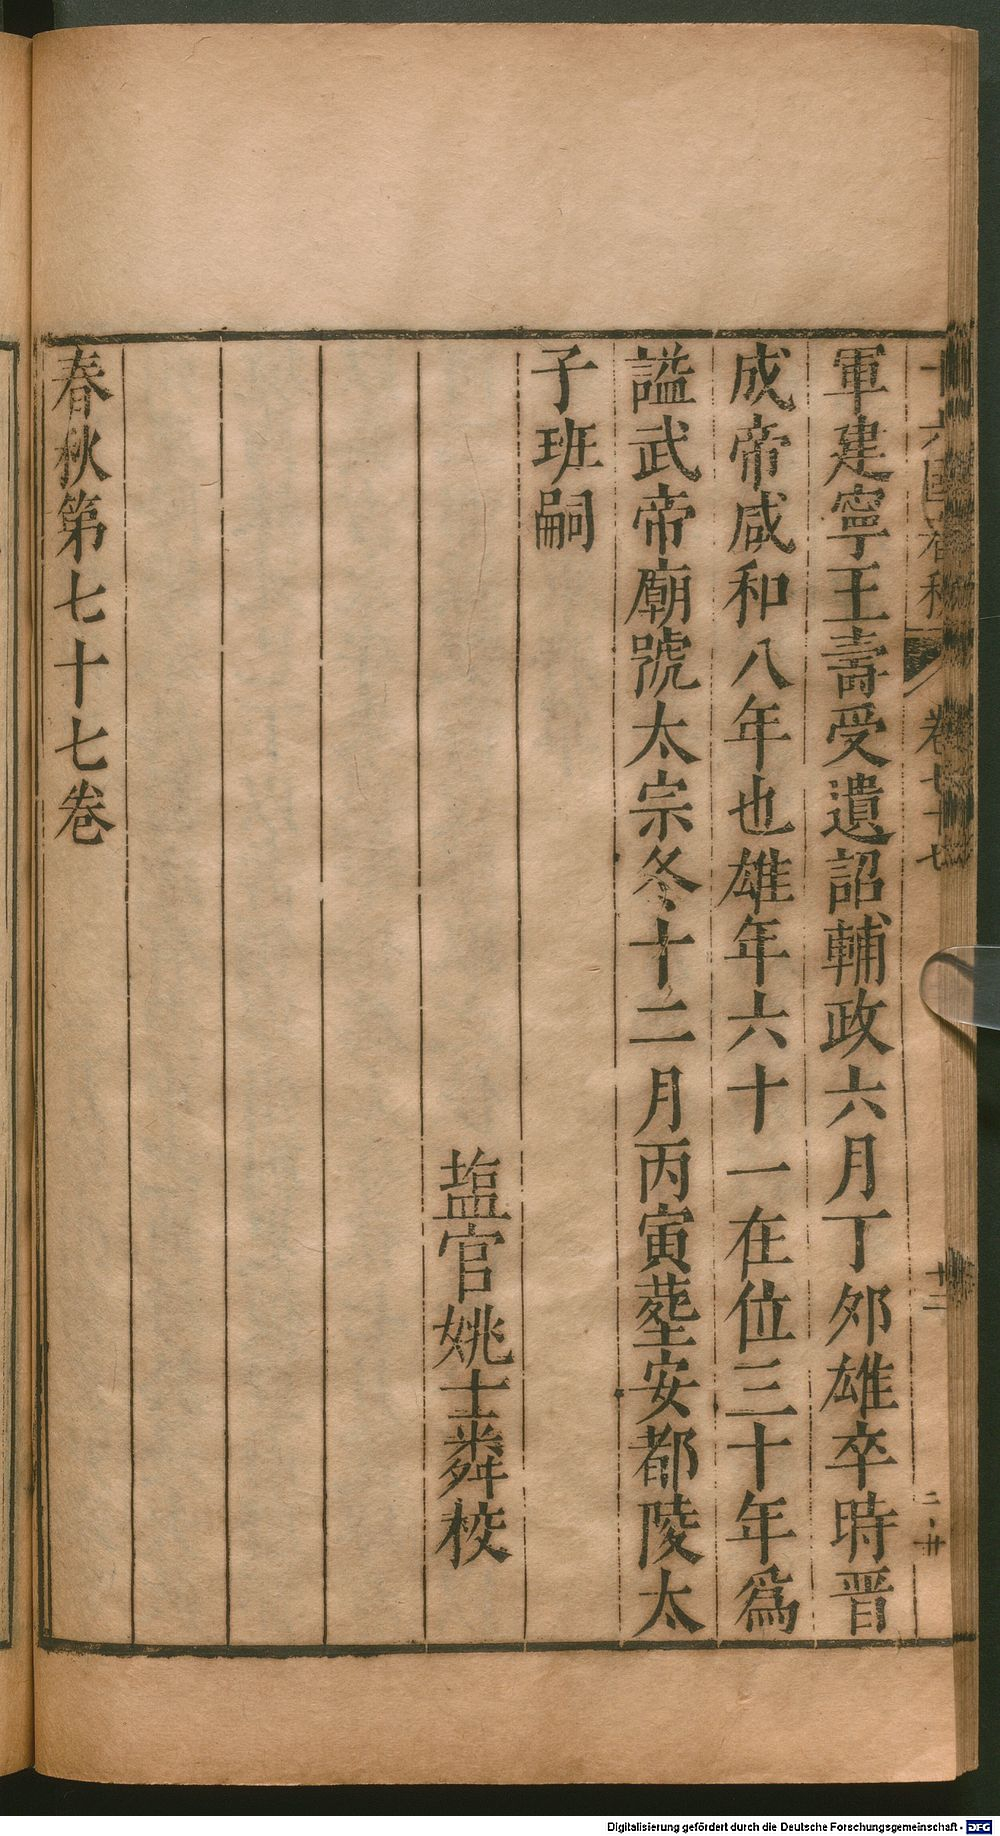 十六國春秋 卷七十七 十二
軍建寧王壽受遺詔輔政六月丁夘雄卒時晋
成帝咸和八年也雄年六十一在位三十年為
謚武帝廟號太宗冬十二月丙寅塟安都陵太
子班嗣
塩官姚士粦校
春秋第七十七巻
Digitalisierung gefördert durch die Deutsche Forschungsgemeinschaft - DFG